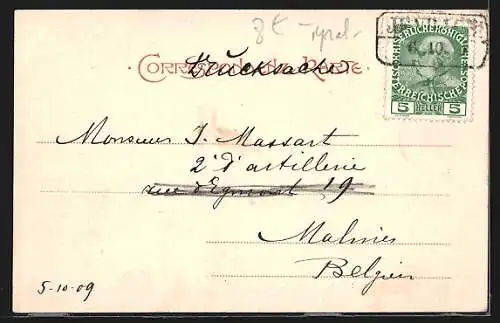 8€ Tyrol.
6.10.
KAISERLICHE KÖNIGLICHE
ÖSTERREICHISCHE
5 HELLER 5
CORRESPONDENZ-KARTE
Drucksache
Monsieur J. Massart
2e d'artillerie
rue d'Egmont 19
Malines
Belgien
5-10-09